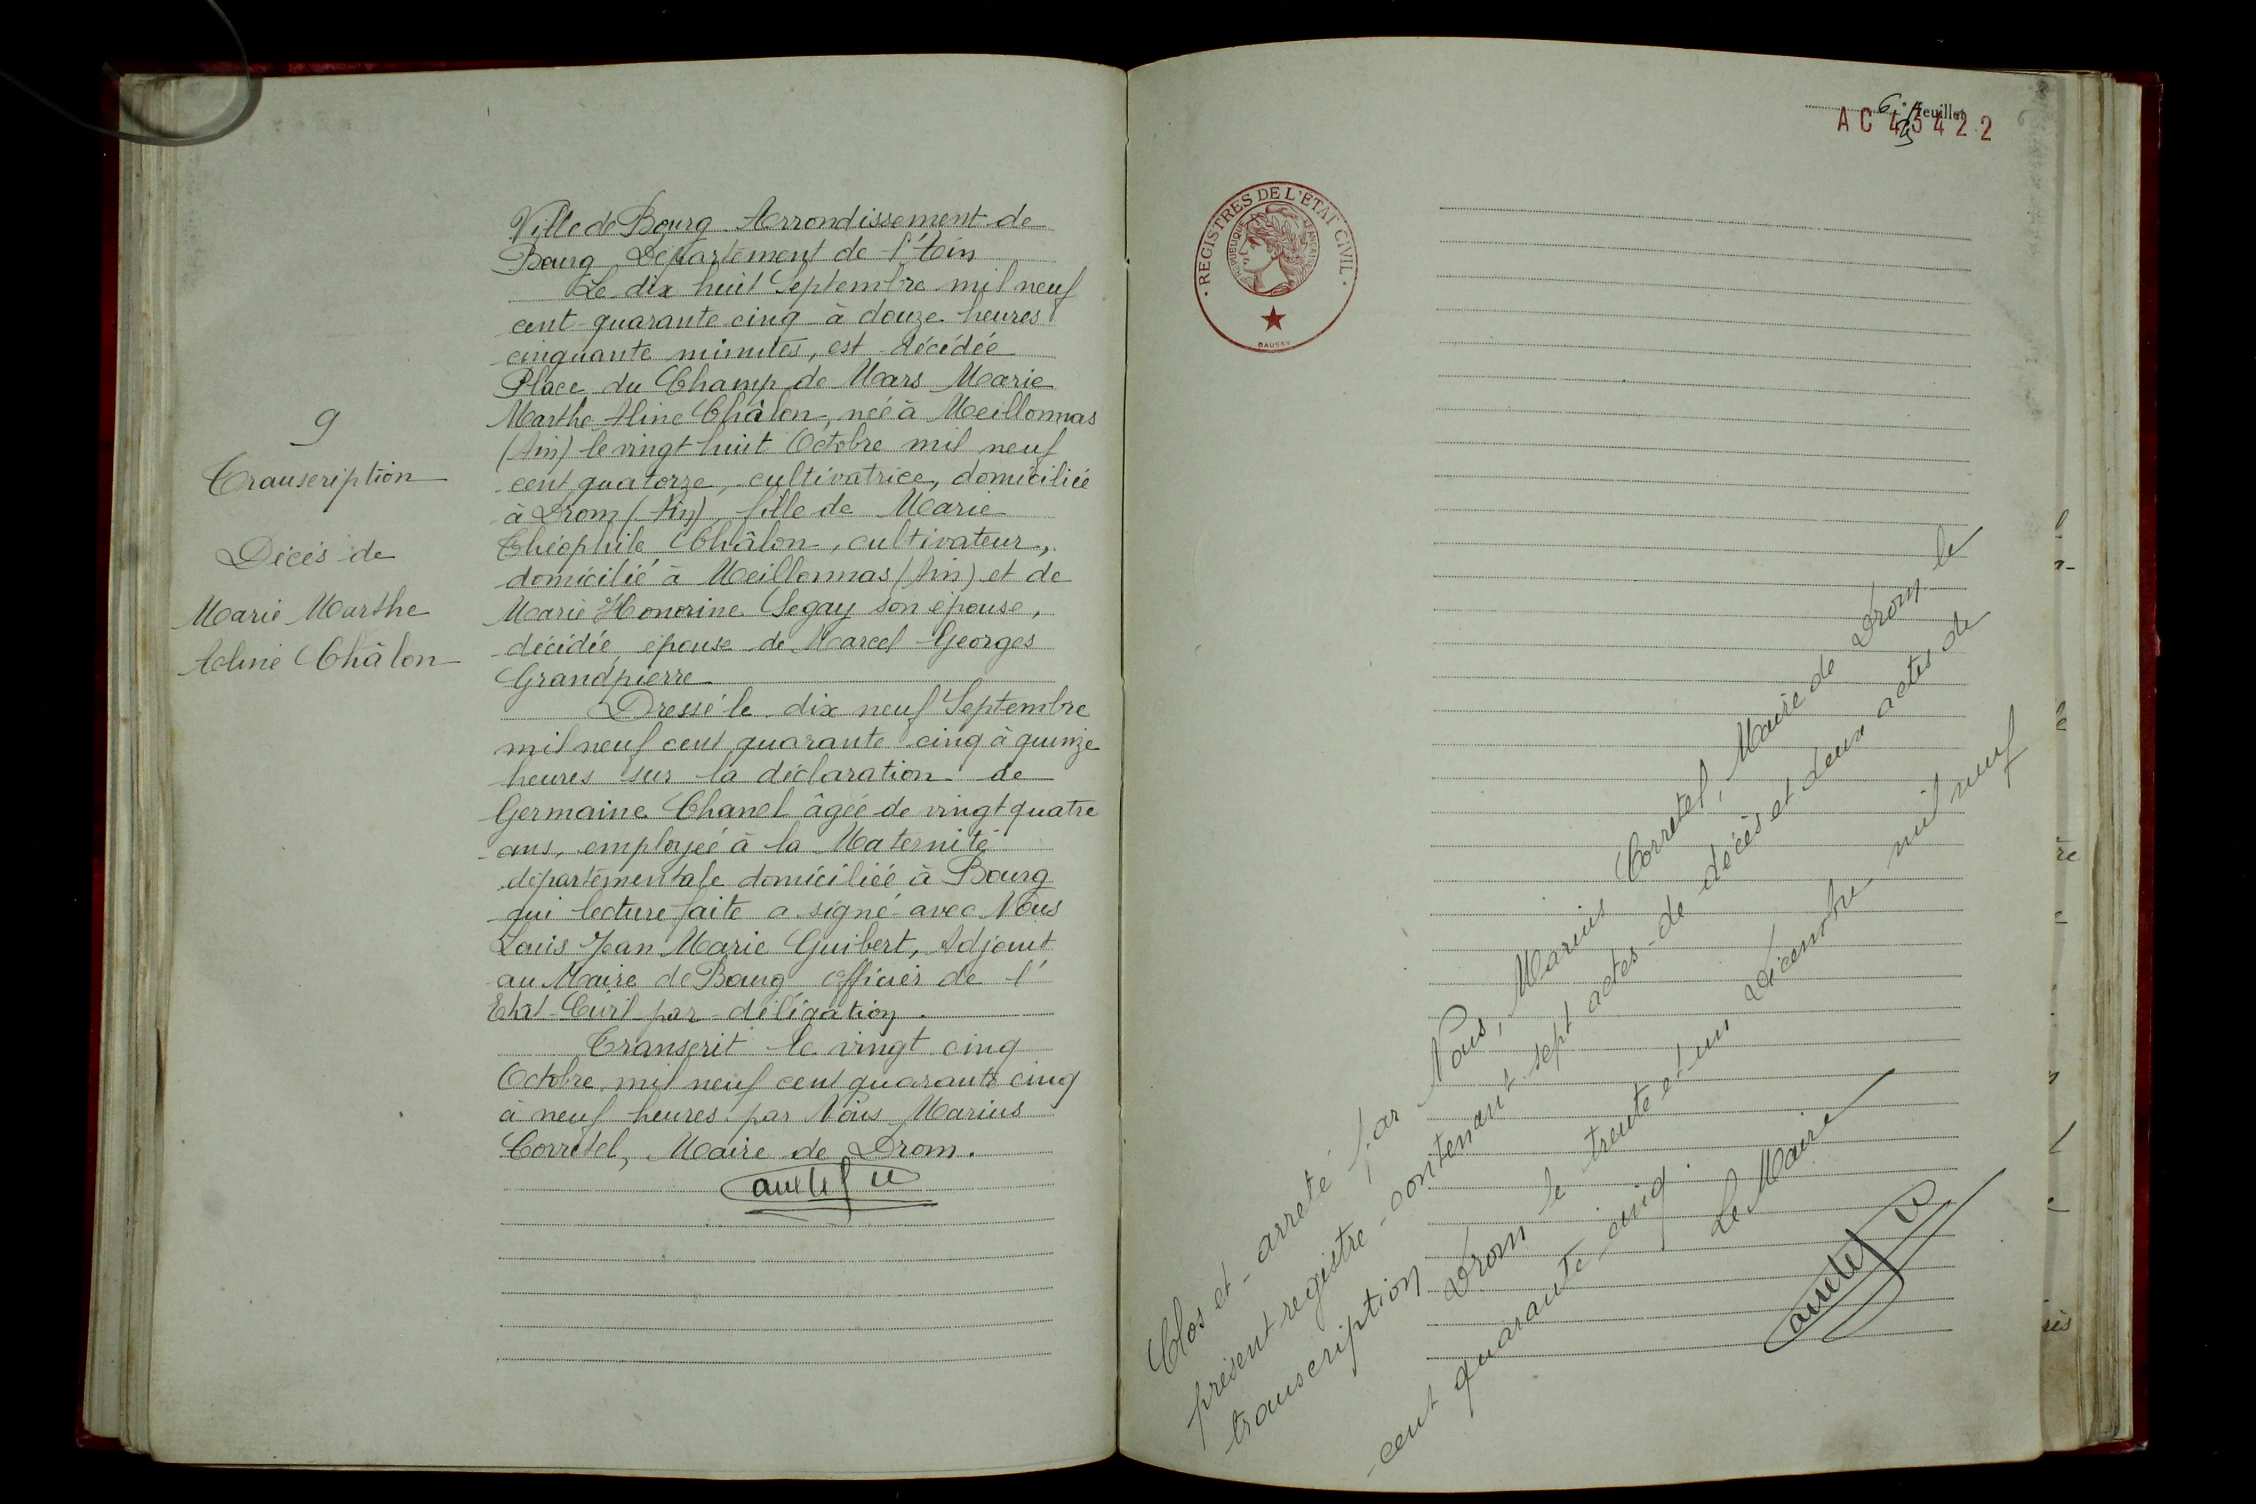 9
Transcription
Décès de
Marie Marthe
Aline Châlon
Ville de Bourg Arrondissement de
Bourg Département de l'Ain
Le dix huit Septembre mil neuf
cent quarante cinq à douze heures
cinquante minutes, est décédée
Place du Champ de Mars Marie
Marthe Aline Châlon, née à Meillonnas
(Ain) le vingt huit Octobre mil neuf
cent quatorze, cultivatrice, domiciliée
à Drom (Ain), fille de Marie
Théophile Châlon, cultivateur,
domicilié à Meillonnas (Ain) et de
Marie Honorine Segay son épouse,
décédée, épouse de Marcel Georges
Grandpierre
Dressé le dix neuf Septembre
mil neuf cent quarante cinq à quinze
heures sur la déclaration de
Germaine Chanel âgée de vingt quatre
ans, employée à la Maternité
départementale domiciliée à Bourg
qui lecture faite a signé avec Nous
Louis Jean Marie Guibert, Adjoint
au Maire de Bourg officier de l'
Etat-Civil par délégation.
Transcrit le vingt cinq
Octobre mil neuf cent quarante cinq
à neuf heures par Nous Marius
Corretel, Maire de Drom.
6
Feuillet
AC 45422
REGISTRES DE L'ETAT CIVIL
REPUBLIQUE FRANCAISE
DAUSSY
Clos et arreté par Nous, Marius Corretel, Maire de Drom le
présent registre contenant sept actes de décès et deux actes de
transcription Drom le trente et un Décembre mil neuf
cent quarante cinq.
Le Maire